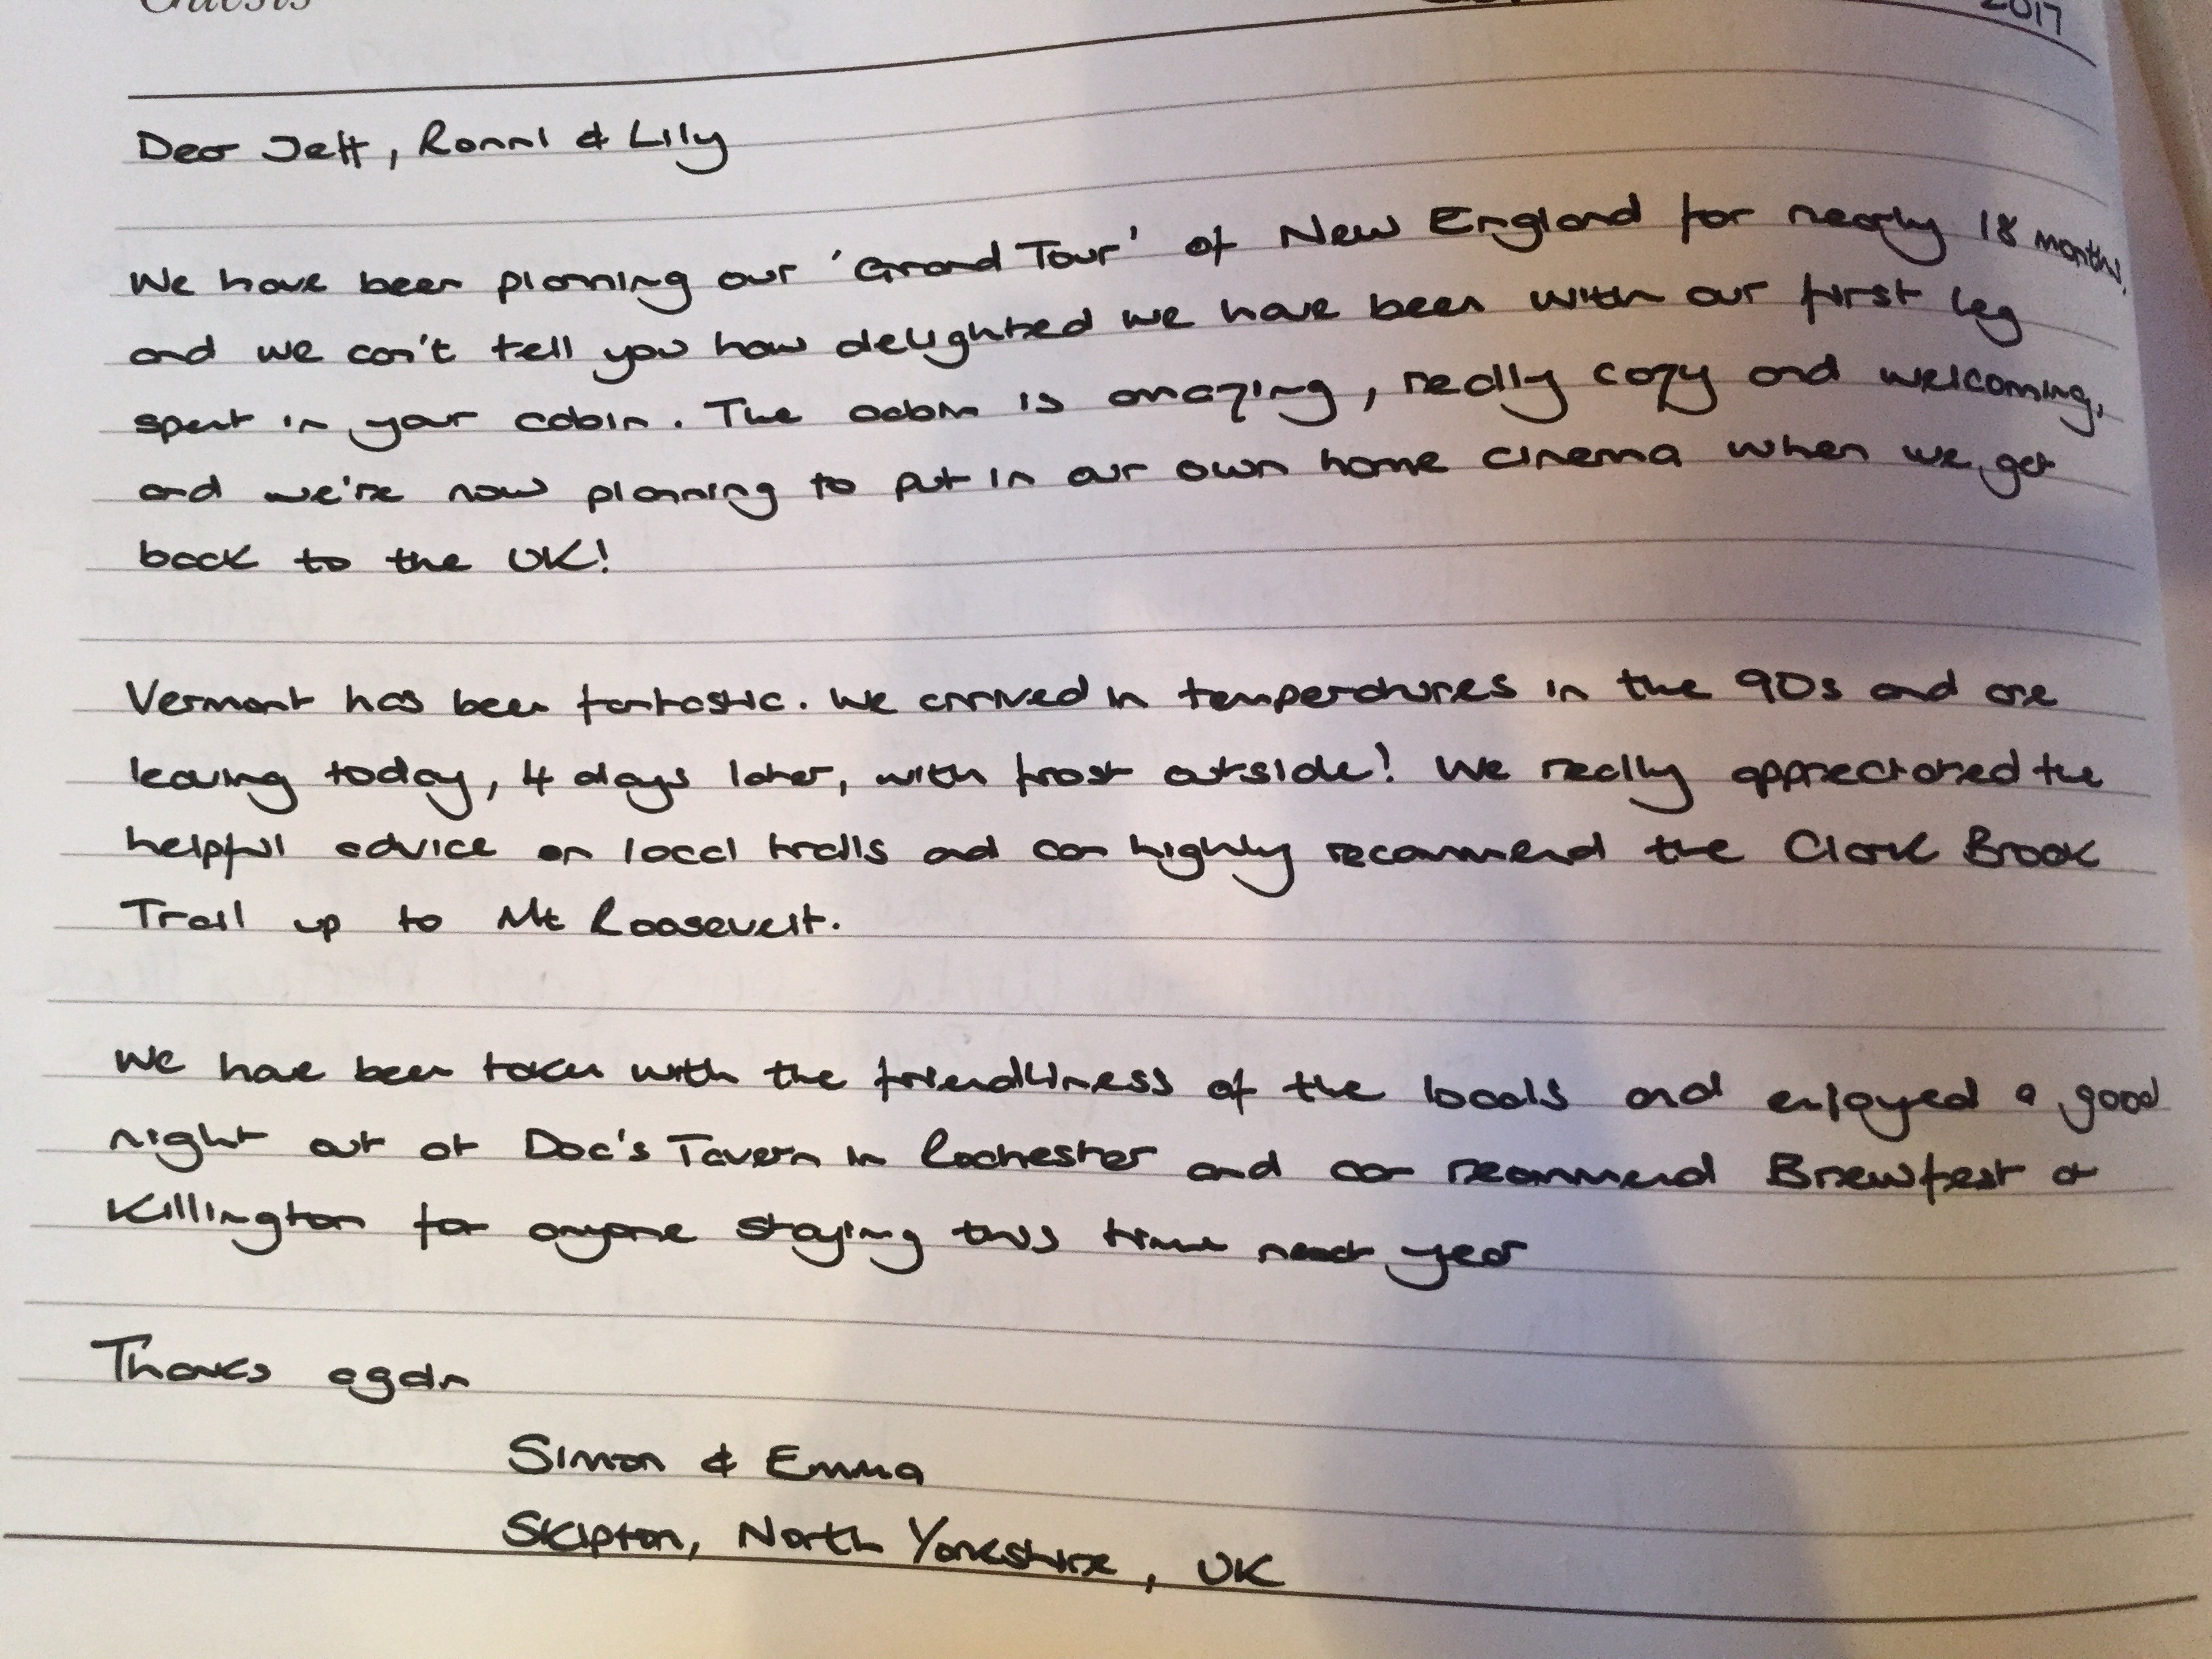 Guests
2017
Dear Jeff, Ronni & Lily
We have been planning our 'Grand Tour' of New England for nearly 18 months,
and we can't tell you how delighted we have been with our first leg
spent in your cabin. The cabin is amazing, really cozy and welcoming,
and we're now planning to put in our own home cinema when we get
back to the UK!
Vermont has been fantastic. We arrived in temperatures in the 90s and are
leaving today, 4 days later, with frost outside! We really appreciated the
helpful advice on local trails and can highly recommend the Clark Brook
Trail up to Mt Roosevelt.
We have been taken with the friendliness of the locals and enjoyed a good
night out at Doc's Tavern in Rochester and can recommend Brewfest at
Killington for anyone staying this time next year
Thanks again
Simon & Emma
Skipton, North Yorkshire, UK